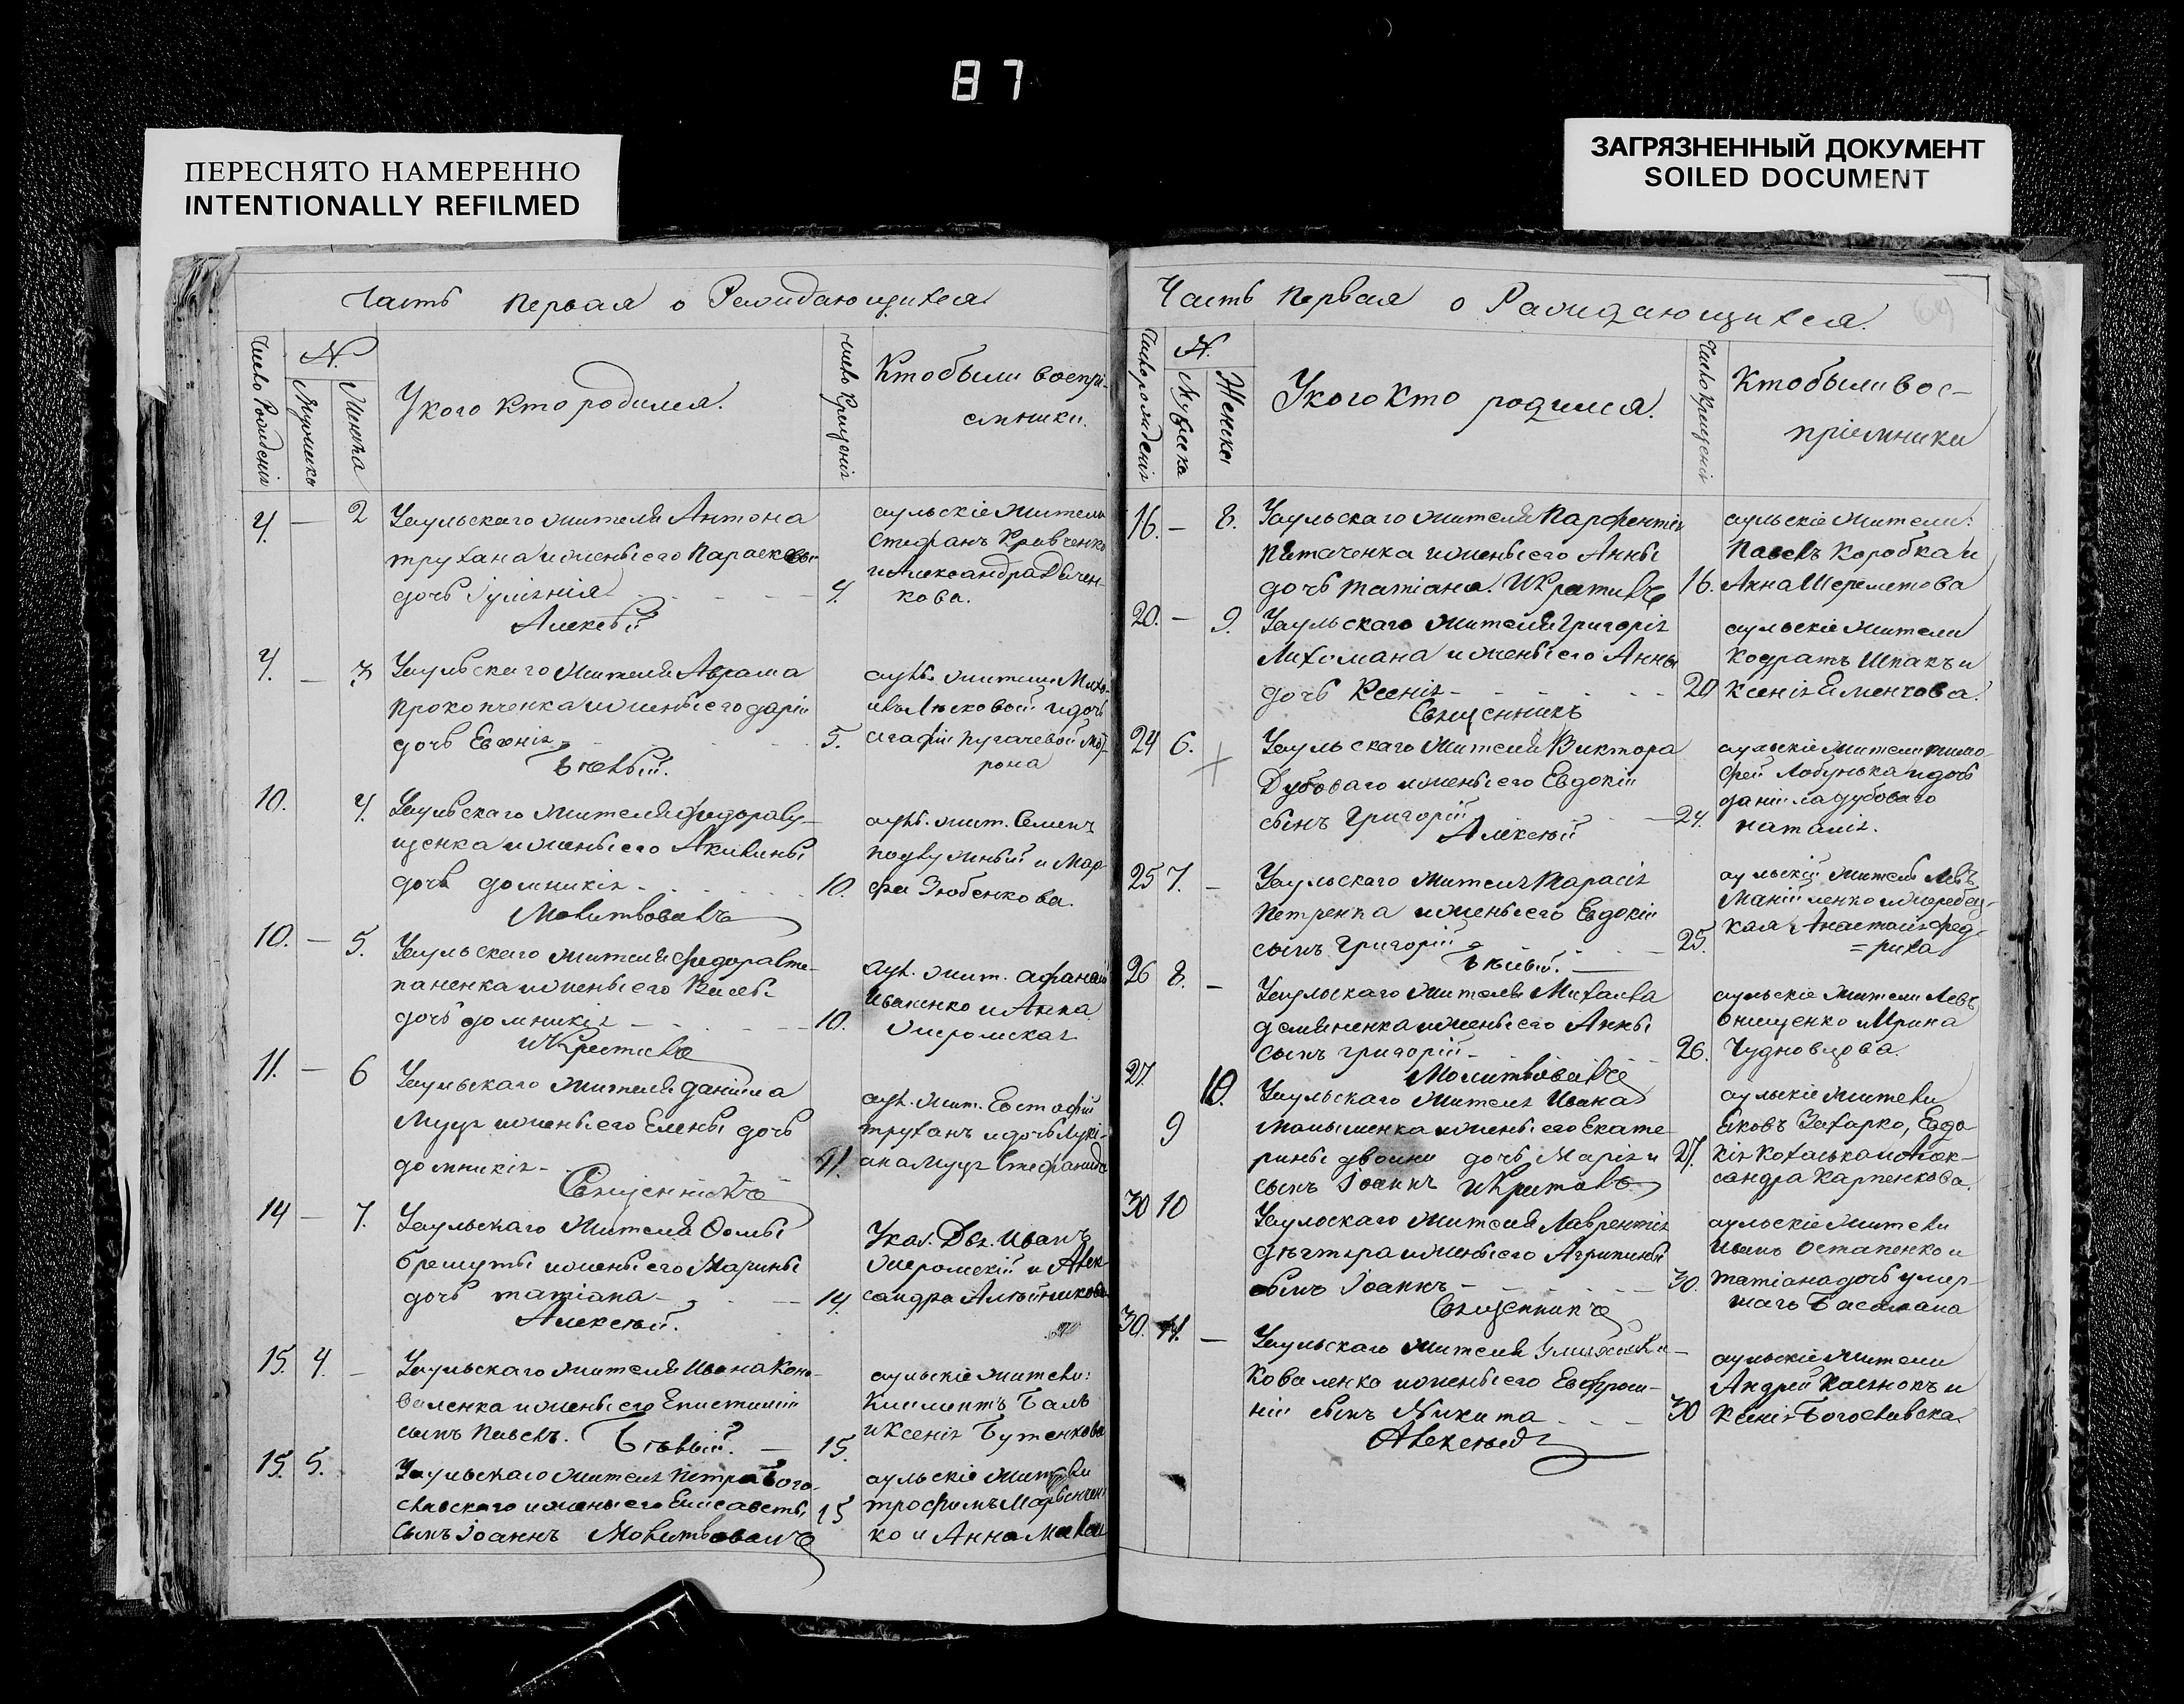 87
ПЕРЕСНЯТО НАМЕРЕННО
INTENTIONALLY REFILMED
ЗАГРЯЗНЕННЫЙ ДОКУМЕНТ
SOILED DOCUMENT
Часть первая о Раждающихся
Число Рожденія
N.
Мужеска
Женска
У кого кто родился.
число Крещенія
Кто были воспрі-
емники.
4. — 2
Уаульскаго жителя Антона
трухана и жены его Парасковьи
дочь Іуліанія 4.
Алексѣй
аульскіе жители
Стефанъ Кравченко
и Александра
кова.
4. — 3
Уаульскаго жителя Аврама
Прокопченка и жены его даріи
дочь Евфенія 5.
Бѣлый.
аул. жители
Агафіи Пугачевой
10. 4.
Уаульскаго жителя федора
щенка и жены его Акилины
дочь домникія 10.
Молитвовалъ
аул. жит. Семенъ
и Мар-
фа Зюбенкова.
10. — 5.
Уаульскаго жителя федора Сте-
паненка и жены его
дочь домникія 10.
и Крестилъ
аул. жит. афанасій
Иваненко и Анна
11. — 6
Уаульскаго жителя даніила
Муця и жены его Елены дочь
домникія 11.
Священникъ
аул. жит. Евстафій
трухань и дочь Лукі-
ана Муця Стефанида
14 — 7.
Уаульскаго жителя Ѳомы
и жены его Марины
дочь татіана 14.
Алексѣй.
Указ. Дья. Иванъ
и Алек-
сандра Алейникова
15. 4. —
Уаульскаго жителя Ивана Коно-
валенка и жены его Епистиміи
сынъ Павелъ. Бѣлый. — 15.
аульскіе жители:
Климентъ Баль
и Ксенія Бутенкова
15. 5.
Уаульскаго жителя Петра Бого-
славскаго и жены его Елисаветы
сынъ Іоаннъ Молитвовалъ 15
аульскіе жители
трофимъ
ко и Анна
Часть первая о Раждающихся.
64
Число рожденія
N.
Мужеска
Женска
У кого кто родился.
Число Крещенія
Кто были вос-
пріемники
16. — 8.
Уаульскаго жителя Парфентія
и жены его Анны
дочь татіана. И Крестилъ 16.
аульскіе жители:
Павелъ Коробка и
Анна Шереметова
20. — 9.
Уаульскаго жителя Григорія
Лихомана и жены его Анны
дочь Ксенія 20
Священникъ
аульскіе жители
Кодратъ Шпакъ и
Ксенія
24 6.
Уаульскаго жителя Виктора
Дубоваго и жены его Евдокіи
сынъ Григорій 24.
Алексѣй
аульскіе жители тимо-
фей Лобунька и дочь
даніила дубоваго
наталія.
25 7. —
Уаульскаго жителя Тарасія
Петренка и жены его Евдокіи
сынъ Григорій 25.
Бѣлый.
аульскій житель Левъ
26 8. —
Уаульскаго жителя Михаила
демяненка и жены его Анны
сынъ григорій 26.
Молитвовалъ
аульскіе жители Левъ
Онищенко и Ирина
Чудновцова.
27. 10.
9
Уаульскаго жителя Ивана
Малышенка и жены его Екате-
рины двойни дочь Марія и 27.
сынъ Іоаннъ и Крестилъ
аульскіе жители
Яковъ Захарко, Евдо-
кія и Алек-
сандра Карпенкова.
30 10
Уаульскаго жителя Лаврентія
дегтяра и жены его Агрипины
сынъ Іоаннъ 30.
Священникъ
аульскіе жители
Иванъ Остапенко и
татіана дочь умер-
шаго
30. 11. —
Уаульскаго жителя
Коваленка и жены его Евфроси-
ніи сынъ Никита 30
Алексѣй
аульскіе жители
Андрей и
Ксенія Богославска.